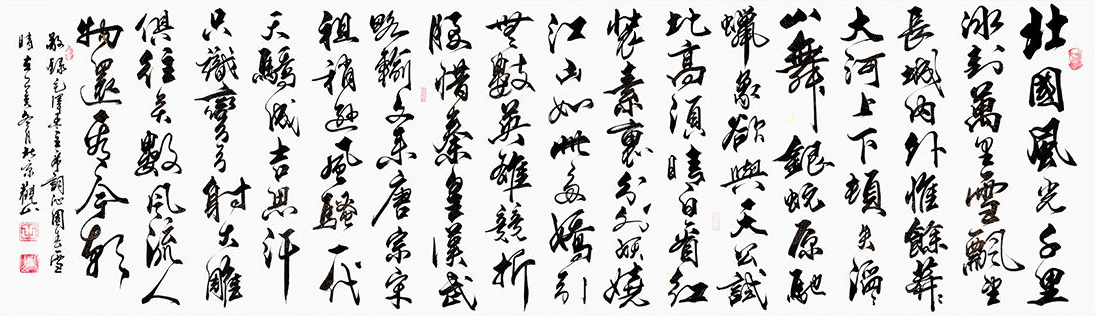 北國風光千里
冰封萬里雪飄望
長城內外惟餘莽〻
大河上下頓失滔〻
山舞銀蛇原馳
蠟象欲與天公試
比高須晴日看紅
裝素裹分外妖嬈
江山如此多嬌引
無數英雄競折
腰惜秦皇漢武
略輸文采唐宗宋
祖稍遜風騷一代
天驕成吉思汗
只識彎弓射大雕
俱往矣數風流人
物還看今朝
敬錄毛澤東主席詞沁園春雪
時在己亥冬月北京觀山